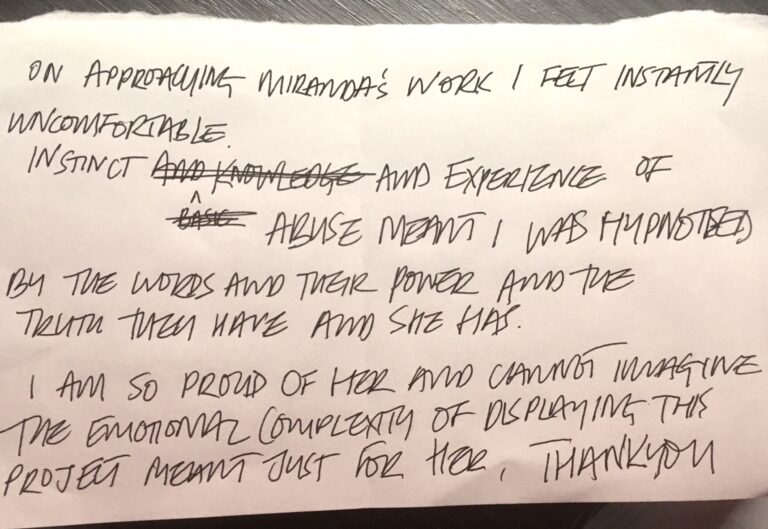 ON APPROACHING MIRANDA'S WORK I FELT INSTANTLY
UNCOMFORTABLE.
INSTINCT AND KNOWLEDGE AND EXPERIENCE OF
BASIC ABUSE MEANT I WAS HYPNOTISED
BY THE WORDS AND THEIR POWER AND THE
TRUTH THEY HAVE AND SHE HAS.
I AM SO PROUD OF HER AND CANNOT IMAGINE
THE EMOTIONAL COMPLEXITY OF DISPLAYING THIS
PROJECT MEANT JUST FOR HER. THANKYOU